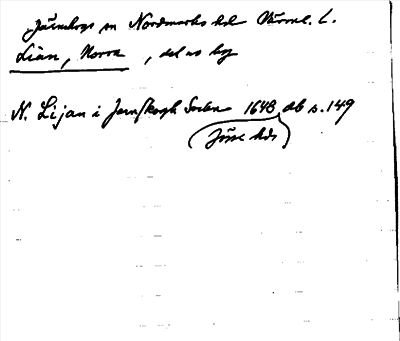 Järnskogs sn Nordmarks hd Värml. l.
Lian, Norra, del av by
N. Lijan i Jernskogh Sochn 1648 db s. 149
(Jösse hds)